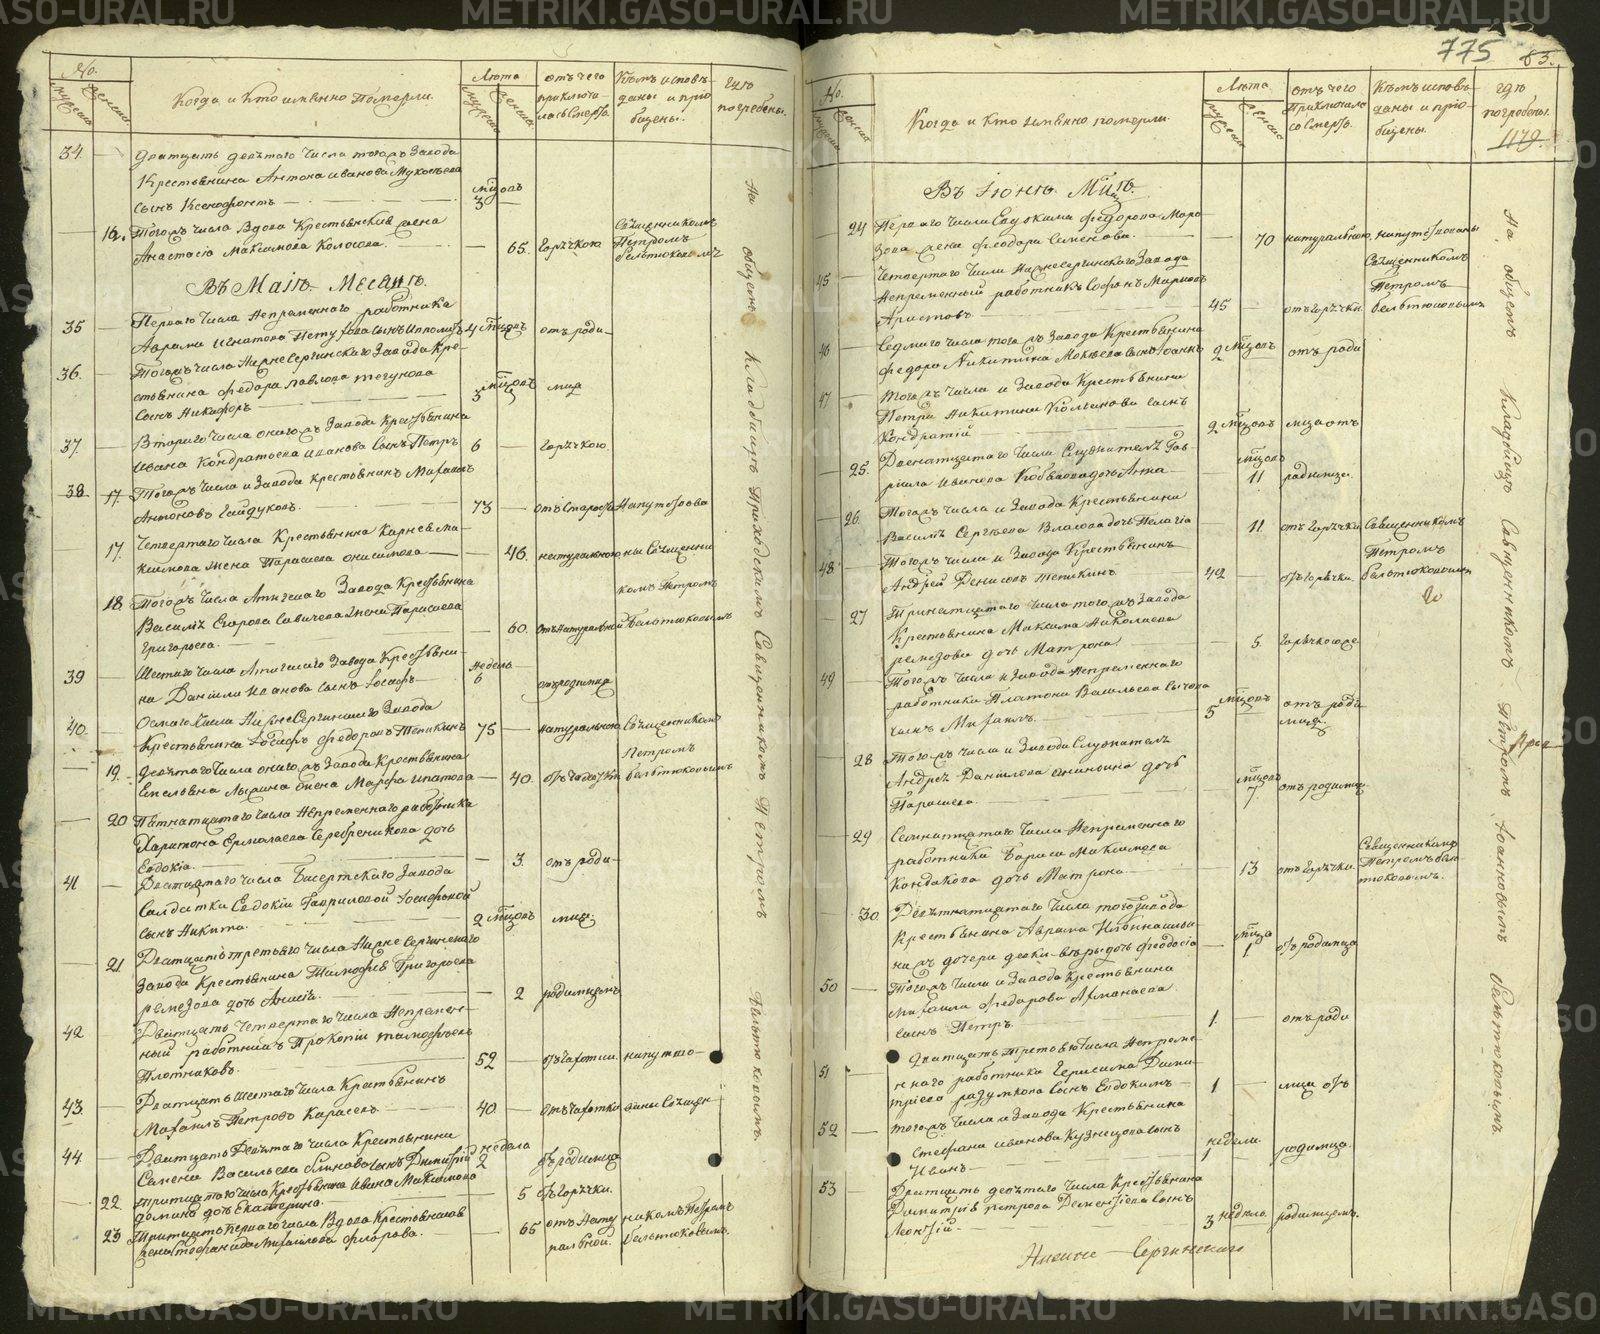 METRIKI.GASO-URAL.RU
775
83.
No.
Когда и кто имянно померли.
Лѣта
отъ чего
приключи
лась смерть
Кѣмъ исповѣ-
даны и прiо
бщены.
гдѣ
погребены.
34.
Дватцать девѣтаго числа тогожъ завода
Крестьянина Антона Иванова
сынъ Ксенофонтъ
3
мѣцовъ
16.
Тогожъ числа вдова Крестьянская жена
Анастасiя Максимова Колосова.
65.
горѣчкою
Священникомъ
Петромъ
Въ Маiѣ Месяцѣ.
35
Перваго числа Непременнаго работника
Аврама Игнатова Петухова сынъ Ипполитъ
4 мѣцовъ
отъ роди
36.
Тогожъ числа Нижнесергинскаго завода Кре-
стьянина Федора Павлова
сынъ Никифоръ
5
мѣцовъ
37.
Втораго числа онагожъ завода Крестьянина
Ивана Кондратьева Иванова сынъ Петръ
6
горѣчкою
38
17.
Тогожъ числа и завода крестьянинъ Михаилъ
Антоновъ Гайдуковъ.
73
отъ старости
17.
Четвертаго числа Крестьянина Карнея Ма-
ксимова жена Парасковья Онисимова
46.
натуральною
ны Священни
комъ Петромъ
18
Тогожъ числа Атигскаго Завода Крестьянина
Василiя Егорова Савичева жена Парасковья
Григорьева.
60.
отъ натуральной
39
Шестаго числа Атигскаго Завода Крестьяни-
на Данiила Иванова сынъ Iосифъ
недель
6
отъ родимца
40.
Осмаго числа Нижнесергинскаго Завода
Крестьянина Iосифъ Федоровъ Тепикинъ
75
натуральною
Священникомъ
Петромъ
19.
Девѣтаго числа онагожъ завода Крестьянина
жена Марфа Ипатова
40.
20
Пятнатцатаго числа Непременнаго работника
Харитона Ермолаева Серебреникова дочь
Евдокiя
3.
отъ роди
41
Дватцатаго числа Бисертскаго Завода
Салдатки Евдокiи Гавриловой
сынъ Никита.
2 мѣцовъ
21
Дватцать третьяго числа Нижнесергинскаго
Завода Крестьянина Тимофея Григорьева
Ремезова дочь Анисiя.
2
родимцемъ
42.
Дватцать четвертаго числа Непремен-
ный работникъ Прокопiй Тимофѣевъ
Плотниковъ.
52
43.
Дватцать шестаго числа Крестьянинъ
Михаилъ Петровъ Карасевъ
40.
отъ чахотки
44.
Дватцать девѣтаго числа Крестьянина
Семена Васильева Блинова сынъ Димитрiй
недели
2
22
Тритцатаго числа Крестьянина Ивана Максимова
дочь Екатерина
5
23
Тритцать перваго числа вдова Крестьянская
жена Стефанида Михайлова Флорова.
65
отъ нату
ральной.
На общемъ кладбищѣ Приходскимъ Священникомъ Петромъ
No.
Когда и кто имянно померли.
Лѣта
отъ чего
приключила
со смерть.
Кѣмъ исповѣ-
даны и прiо-
бщены.
гдѣ
погребены.
1179.
Въ Iюнѣ Мцѣ.
24
Перваго числа Евдокима Федорова Моро
зова жена Феодора Семенова.
70
натуральною
45
Четвертаго числа Нижнесергинскаго Завода
Непременный работникъ Софонъ Марковъ
Аристовъ
45
отъ горѣчки
Священникомъ
Петромъ
46
Седмаго числа тогожъ завода Крестьянина
Федора Никитина сынъ Iоаннъ
2 мѣцовъ
отъ роди
47
Тогожъ числа и завода Крестьянина
Петра Никитина сынъ
Кондратiй
2 мѣцовъ
25.
Двенатцатаго числа Служителя Гав-
рiила Иванова дочь Анна
мѣцовъ
11
родимца
26.
Тогожъ числа и завода Крестьянина
Василiя Сергѣева Власова дочь Пелагiя
11.
отъ горѣчки
Священникомъ
Петромъ
48.
Тогожъ числа и завода Крестьянинъ
Андрей Денисовъ Тепикинъ
42
отъ горѣчки.
27
Тринатцатаго числа тогожъ завода
Крестьянина Максима Николаева
Ремезова дочь Матрона
5.
горѣчкою
49
Тогожъ числа и завода Непременнаго
работника Платона Васильева Сычева
сынъ Михаилъ.
5
мѣцовъ
отъ роди
мца.
28
Тогожъ числа и завода Служителя
Андрея Данилова Ананьина дочь
Парасковья
мѣцовъ
7.
отъ родимца
29
Семнатцатаго числа Непременнаго
работника Бориса Максимова
Кондакова дочь Матрона
13
отъ горѣчки
Священникомъ
Петромъ
30.
Девѣтнатцатаго числа того завода
Крестьянина Аврама
дочери девки дочь Феодосiя
мѣца
1
отъ родимца
50
Тогожъ числа и завода Крестьянина
Михаила Федорова Атманаева
сынъ Петръ
1.
отъ роди
51
Дватцать третьяго числа Непреме-
ннаго работника Герасима Дими-
трiева Разумкова сынъ Евдокимъ
1
мца отъ
52
Тогожъ числа и завода Крестьянина
Стефана Иванова Кузнецова сынъ
Иванъ
недели
1
родимца
53
Дватцать девѣтаго числа Крестьянина
Димитрiя Петрова Дементiева сынъ
Леонтiй.
3 недели
родимцемъ.
Нижне-Сергинскаго
На общемъ кладбищѣ Священникомъ Петромъ Iоанновымъ